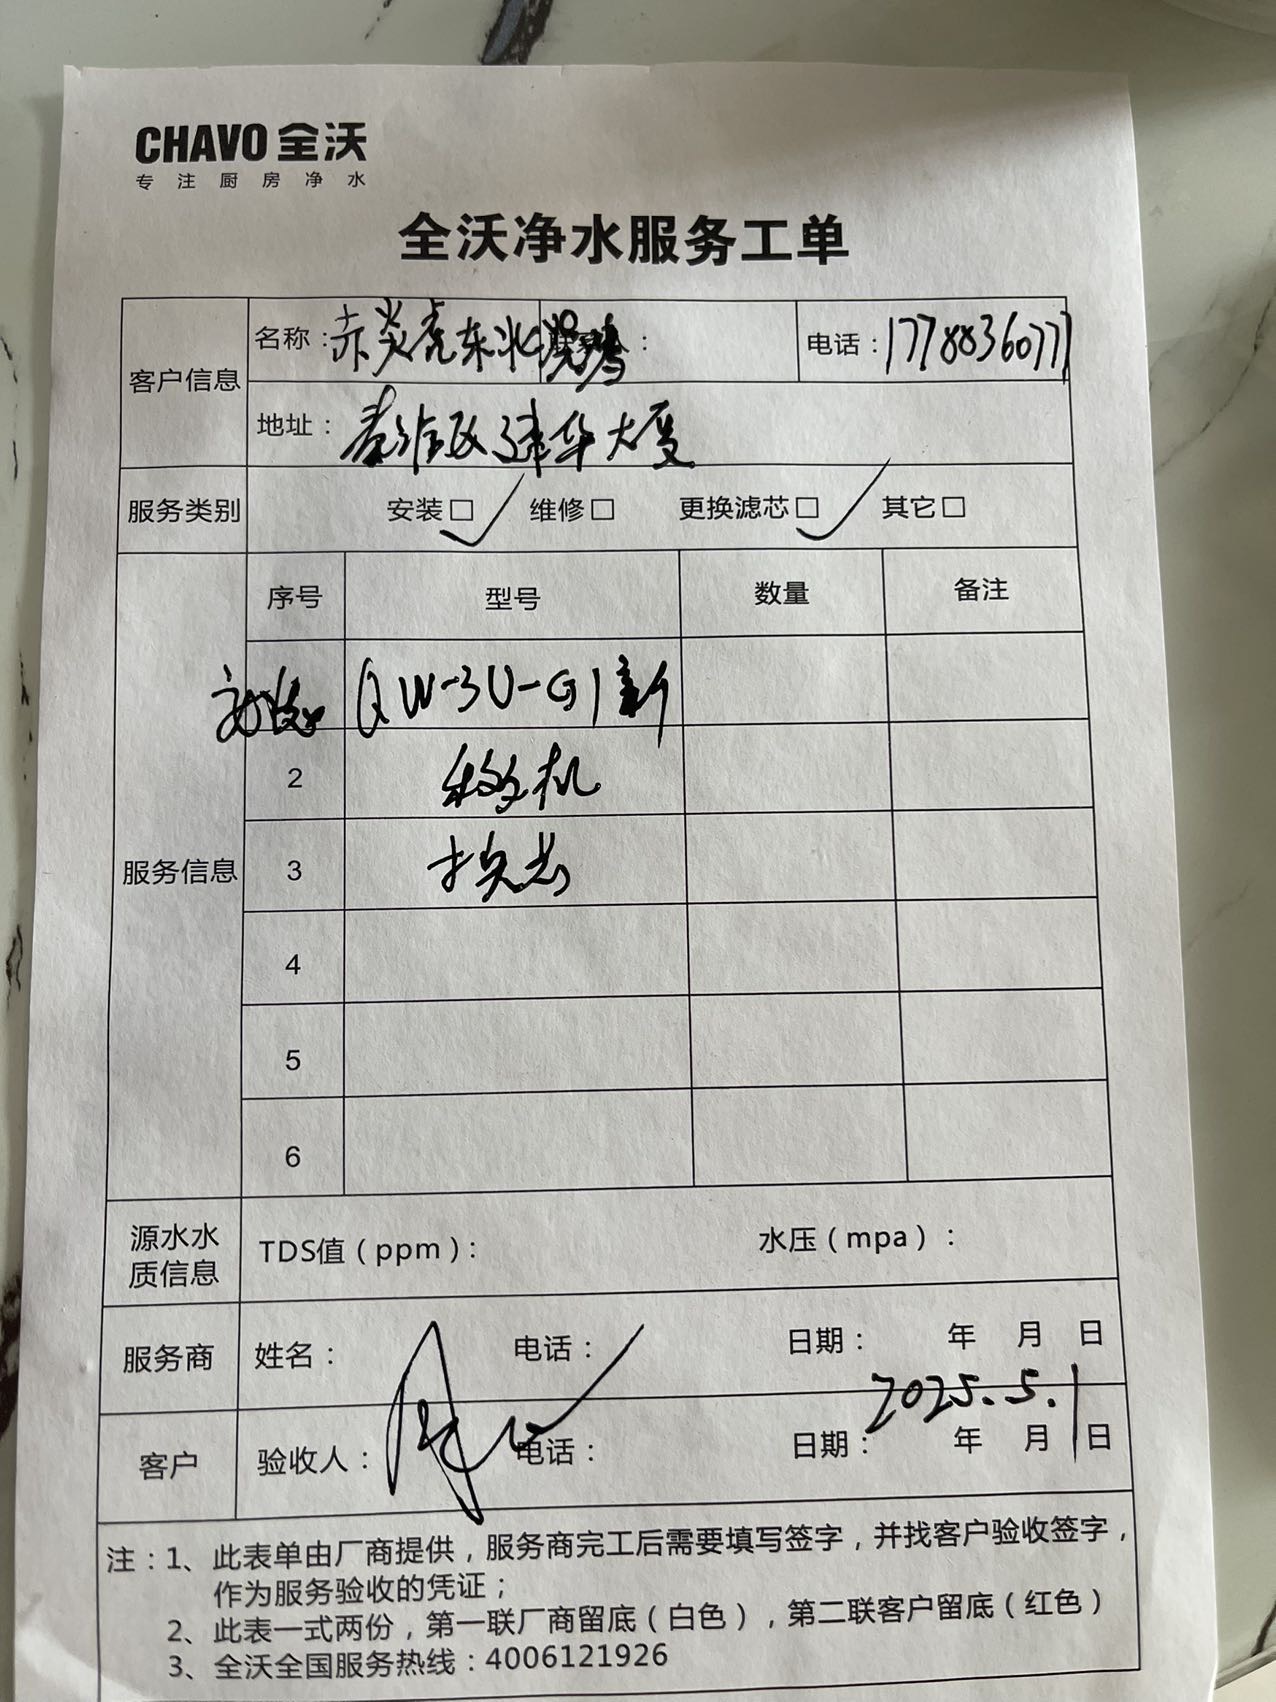 CHAVO 全沃
专注厨房净水
全沃净水服务工单
客户信息
名称：赤炎虎东北 ： 电话：17788360777
地址： 建华大厦
服务类别 安装□ 维修□ 更换滤芯□ 其它□
服务信息
序号 型号 数量 备注
QW-3U-G1新
2 移机
3 换芯
4
5
6
源水水质信息 TDS值（ppm）： 水压（mpa）：
服务商 姓名： 电话： 日期： 年 月 日
2025.5.1
客户 验收人： 电话： 日期： 年 月 日
注：1、此表单由厂商提供，服务商完工后需要填写签字，并找客户验收签字，
作为服务验收的凭证；
2、此表一式两份，第一联厂商留底（白色），第二联客户留底（红色）
3、全沃全国服务热线：4006121926